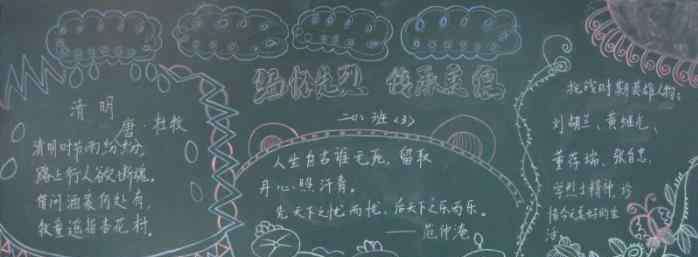 缅怀先烈 传承美德
二八班(3)
清明
唐·杜牧
清明时节雨纷纷,
路上行人欲断魂。
借问酒家何处有,
牧童遥指杏花村。
人生自古谁无死,留取
丹心照汗青。
先天下之忧而忧,后天下之乐而乐。
——范仲淹
抗战时期英雄人物:
刘胡兰、黄继光、
董存瑞、张自忠,
学烈士精神,珍
惜今天美好的生
活